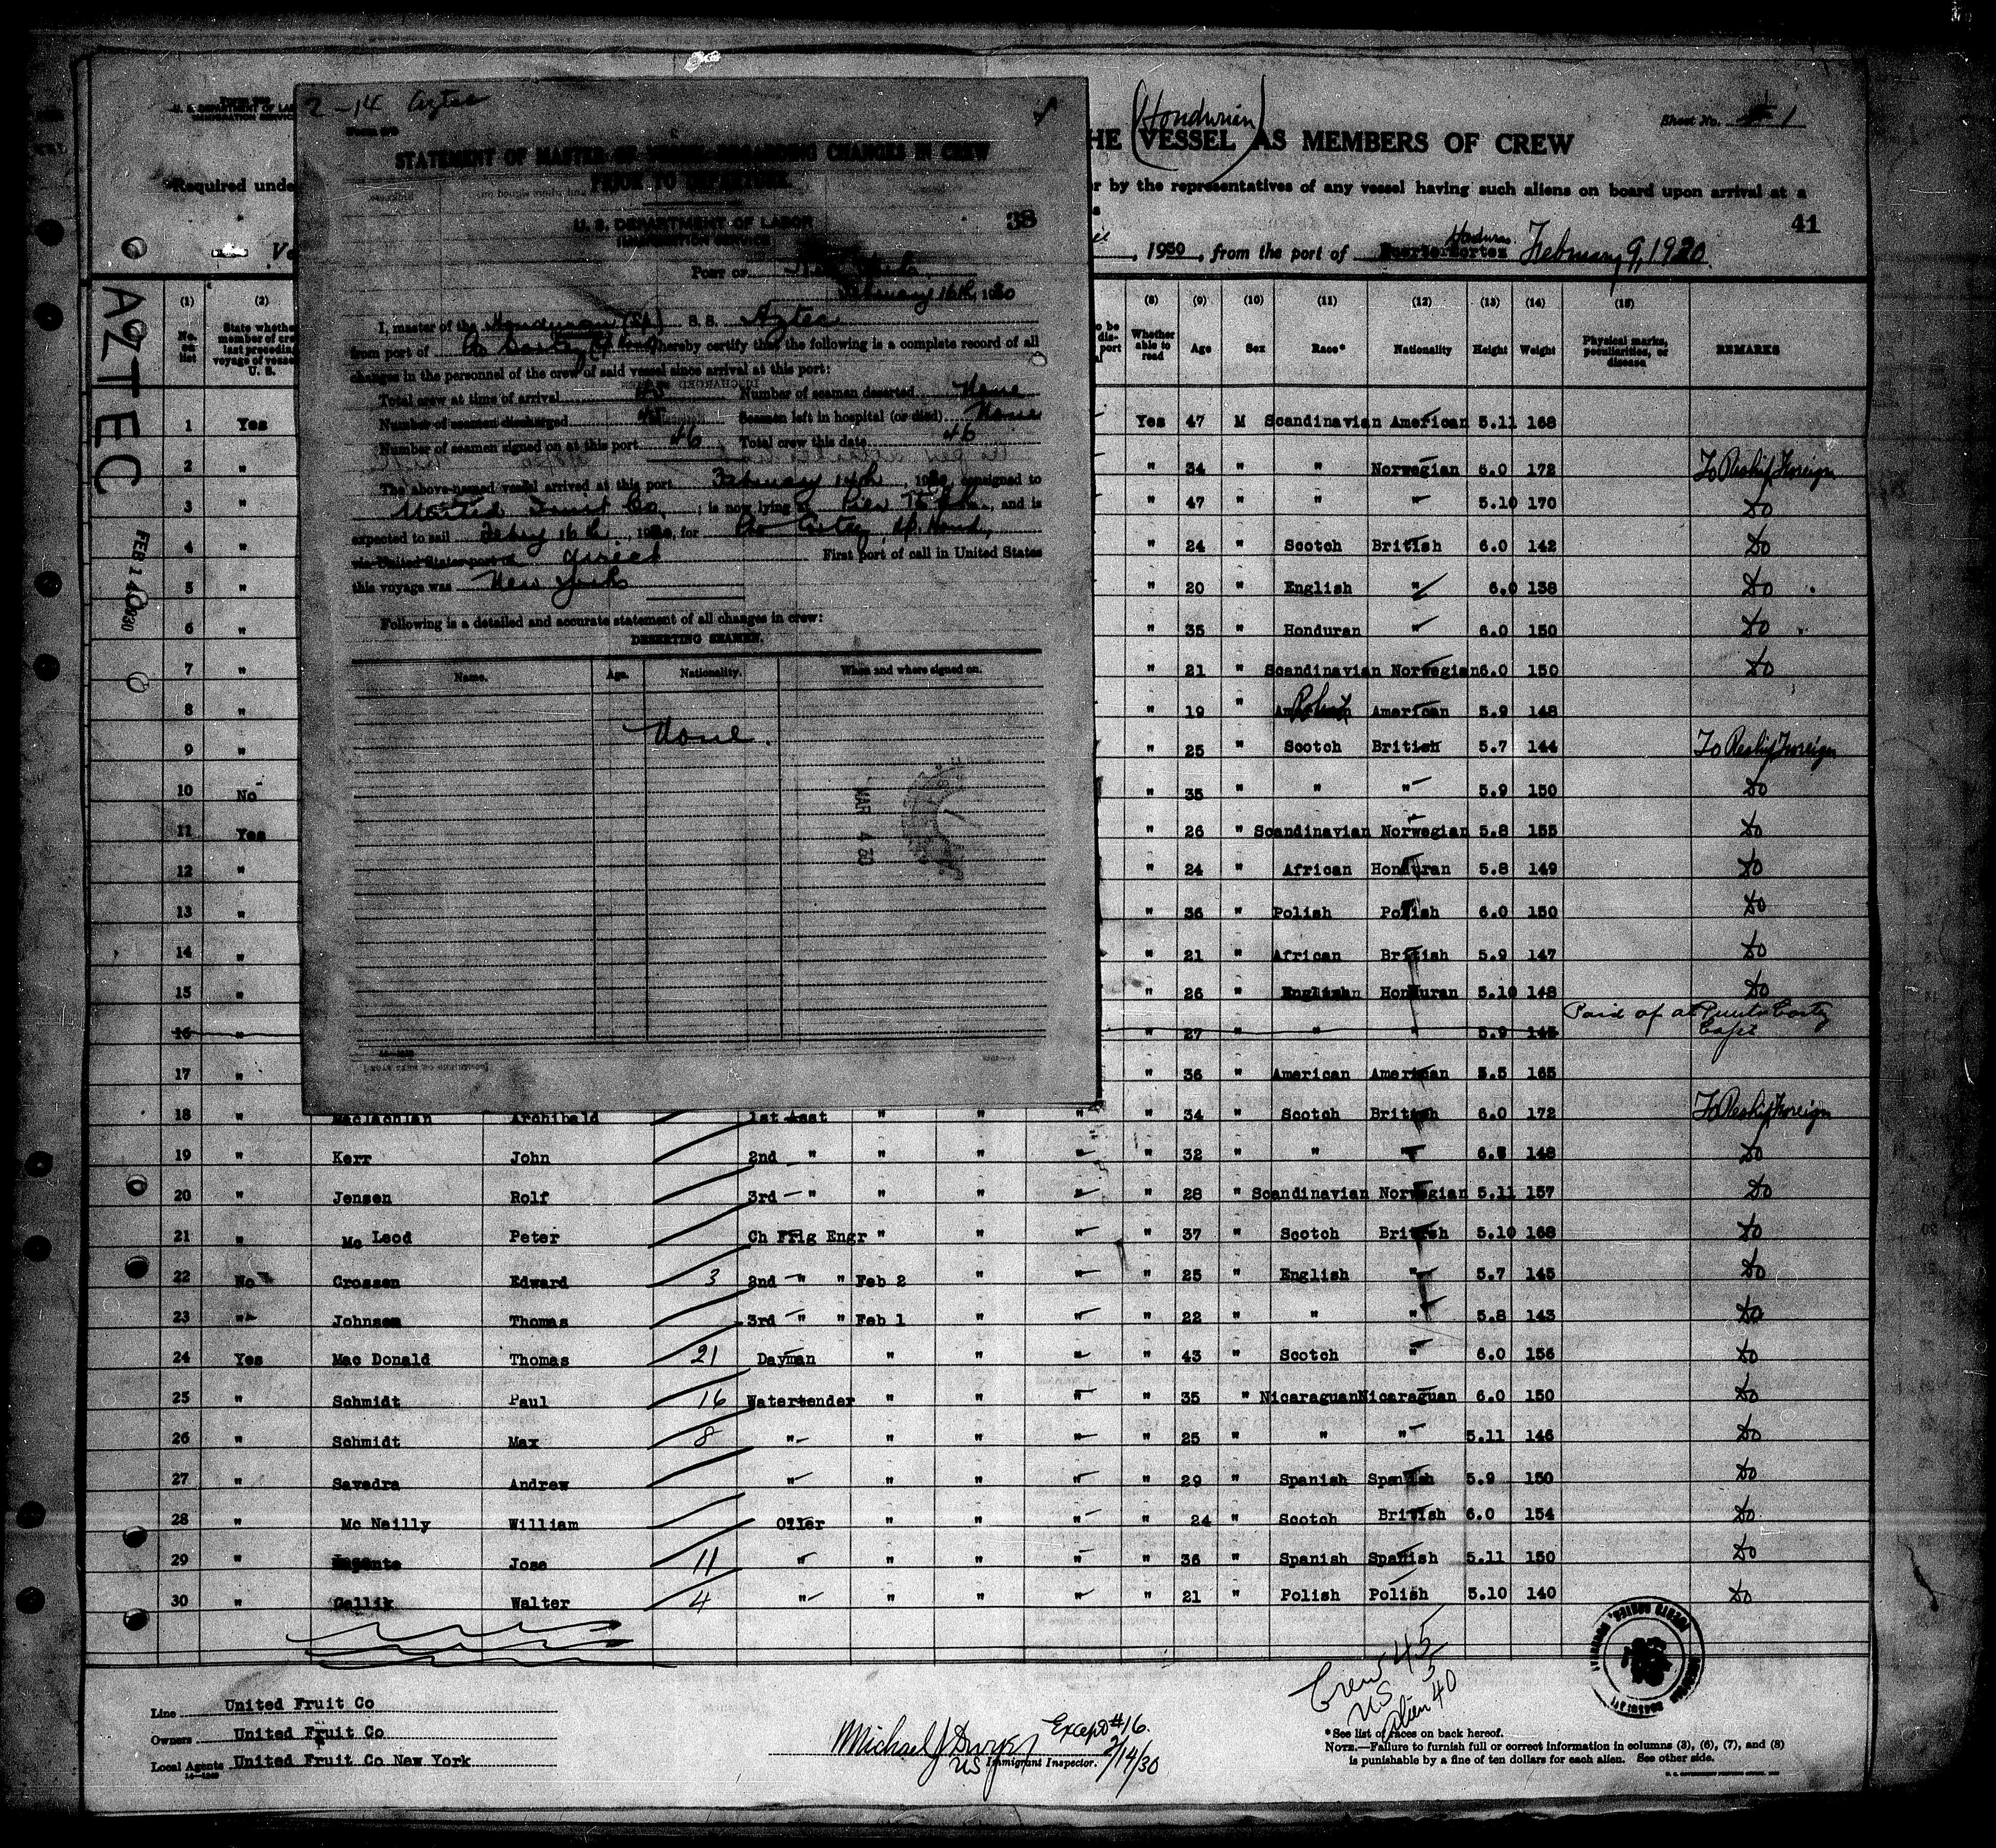 2-14 Aztec
STATEMENT OF MASTER OF VESSEL REGARDING CHANGES IN CREW
PRIOR TO DEPARTURE
U. S. DEPARTMENT OF LABOR
IMMIGRATION SERVICE
38
PORT OF New York
February 16th, 1930
I, master of the Honduran S. S. Aztec
from port of hereby certify that the following is a complete record of all
changes in the personnel of the crew of said vessel since arrival at this port:
Total crew at time of arrival 45 Number of seamen deserted None
Number of seamen discharged Seamen left in hospital (or died) None
Number of seamen signed on at this port 46 Total crew this date 46
The above-named vessel arrived at this port February 14th, 1930, consigned to
United Fruit Co.; is now lying at Pier and is
expected to sail 16th, 1930, for
via United States port of direct First port of call in United States
this voyage was New York
Following is a detailed and accurate statement of all changes in crew:
DESERTING SEAMEN.
Name. Age. Nationality. When and where signed on.
None.
MAR 4 30
HE (VESSEL) AS MEMBERS OF CREW
(Honduran)
Sheet No. 1
Required unde
r by the representatives of any vessel having such aliens on board upon arrival at a
41
, 1930, from the port of Puerto Cortez Honduras February 9, 1930
AZTEC
FEB 14 1930
(1) (2) (8) (9) (10) (11) (12) (13) (14) (15)
No. on list State whether member of crew last preceding voyage of vessel U. S. Whether able to read Age Sex Race* Nationality Height Weight Physical marks, peculiarities, or disease REMARKS
1 Yes Yes 47 M Scandinavian American 5.11 168
2 " " 34 " " Norwegian 6.0 172 To Reship Foreign
3 " " 47 " " " 5.10 170 Do
4 " " 24 " Scotch British 6.0 142 Do
5 " " 20 " English " 6.0 138 Do
6 " " 35 " Honduran " 6.0 150 Do
7 " " 21 " Scandinavian Norwegian 6.0 150 Do
8 " " 19 " American 5.9 148
9 " " 25 " Scotch British 5.7 144 To Reship Foreign
10 No " 35 " " " 5.9 150 Do
11 Yes " 26 " Scandinavian Norwegian 5.8 155 Do
12 " " 24 " African Honduran 5.8 149 Do
13 " " 36 " Polish Polish 6.0 150 Do
14 " " 21 " African British 5.9 147 Do
15 " " 26 " Honduran 5.10 148 Do
16 " " 27 " " " 5.9 145 Paid of at Puerto Cortez Capt
17 " " 36 " American American 5.5 165
18 " Maclachlan Archibald 1st Asst " " " " 34 " Scotch British 6.0 172 To Reship Foreign
19 " Kerr John 2nd " " " " " 32 " " " 148 Do
20 " Jensen Rolf 3rd " " " " " 28 " Scandinavian Norwegian 5.11 157 Do
21 " Mc Leod Peter Ch Frig Engr " " " " 37 " Scotch British 5.10 168 Do
22 No Crossen Edward 3 2nd " " Feb 2 " " " 25 " English " 5.7 145 Do
23 " Johnsen Thomas 3rd " " Feb 1 " " " 22 " " " 5.8 143 Do
24 Yes Mac Donald Thomas 21 Dayman " " " " 43 " Scotch " 6.0 156 Do
25 " Schmidt Paul 16 Watertender " " " " 35 " Nicaraguan Nicaraguan 6.0 150 Do
26 " Schmidt Max 8 " " " " " 25 " " " 5.11 146 Do
27 " Savedra Andrew " " " " " 29 " Spanish Spanish 5.9 150 Do
28 " Mc Neilly William Oiler " " " " 24 " Scotch British 6.0 154 Do
29 " Jose 11 " " " " " 36 " Spanish Spanish 5.11 150 Do
30 " Gallik Walter 4 " " " " " 21 " Polish Polish 5.10 140 Do
Crew 45
US 5
Alien 40
Line United Fruit Co
Owners United Fruit Co
Local Agents United Fruit Co New York
Michael J Dwyer Except #16.
US Immigrant Inspector. 2/14/30
*See list of races on back hereof.
NOTE.—Failure to furnish full or correct information in columns (3), (6), (7), and (8)
is punishable by a fine of ten dollars for each alien. See other side.